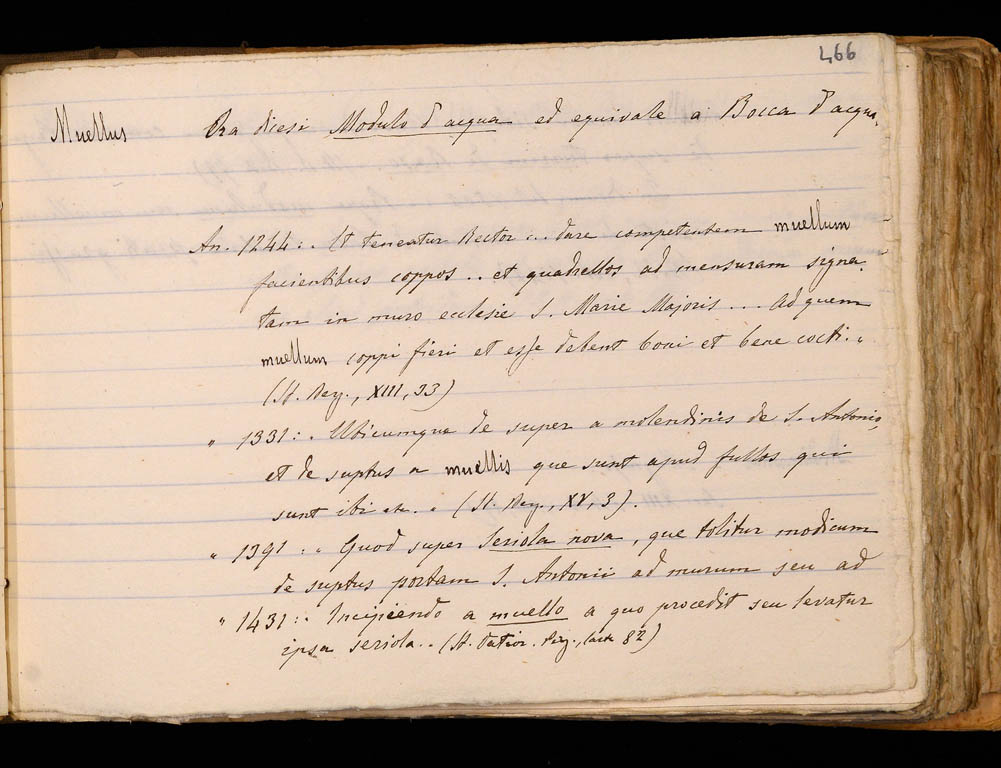 466
Muellus Ora diesi Modulo d'acqua ed equivale a Bocca d'acqua.
An. 1244: „ Et teneatur Rector ... dare competentem muellum
facientibus coppos .. et quadrellos ad mensuram signa-
tam in muro ecclesie S. Marie Majoris ... Ad quem
muellum coppi fieri et esse debent boni et bene cocti. „
(St. Reg., XIII, 33)
„ 1331: „ Ubicumque de super a molendinis de S. Antonio,
et de suptus a muellis que sunt apud fullos qui
sunt ibi etc. „ (St. Reg., XV, 3).
„ 1391: „ Quod super Seriola nova, que tolitur modicum
de suptus portam S. Antonii ad murum seu ad
„ 1431: „ Incipiendo a muello a quo procedit seu levatur
ipsa seriola. „ (St. Datior. Reg., car. 82)